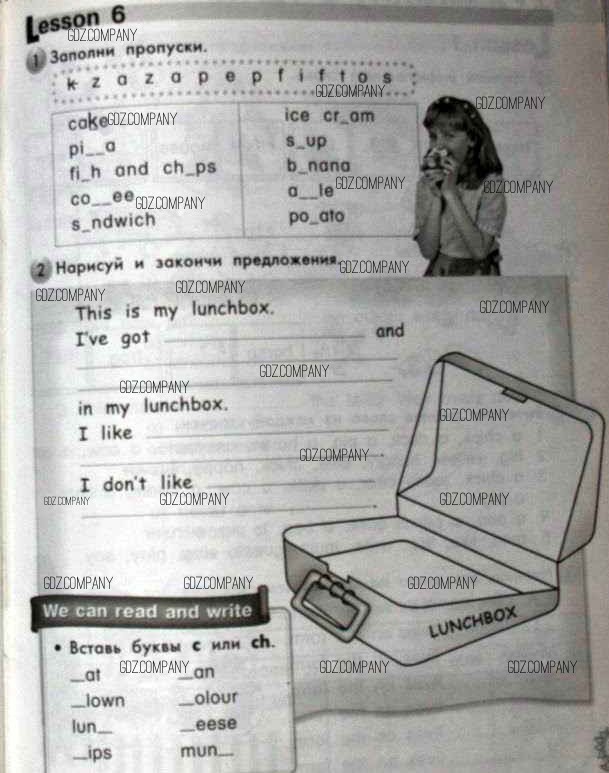 Lesson 6
GDZ.COMPANY
1 Заполни пропуски.
k z a z a p e p f i f t o s
GDZ.COMPANY
cake
GDZ.COMPANY
pi__a
fi_h and ch_ps
co__ee
GDZ.COMPANY
s_ndwich
ice cr_am
s_up
b_nana
a__le
GDZ.COMPANY
po_ato
GDZ.COMPANY
GDZ.COMPANY
2 Нарисуй и закончи предложения.
GDZ.COMPANY
GDZ.COMPANY
GDZ.COMPANY
GDZ.COMPANY
This is my lunchbox.
I've got ____ and
GDZ.COMPANY
GDZ.COMPANY
in my lunchbox.
GDZ.COMPANY
I like ____
GDZ.COMPANY
I don't like ____
GDZ.COMPANY
GDZ.COMPANY
GDZ.COMPANY
GDZ.COMPANY
GDZ.COMPANY
GDZ.COMPANY
LUNCHBOX
We can read and write
• Вставь буквы c или ch.
GDZ.COMPANY
GDZ.COMPANY
GDZ.COMPANY
__at __an
__lown __olour
lun__ __eese
__ips mun__